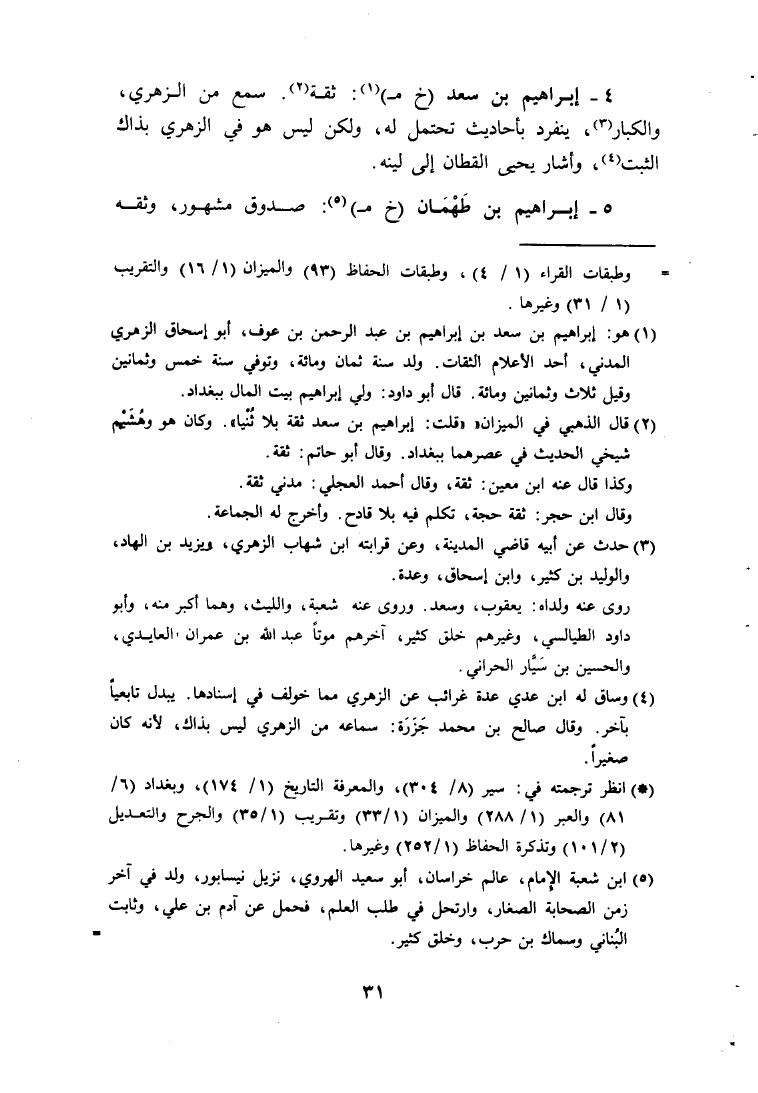 ٤ ـ إبراهيم بن سعد (خ مـ)(١): ثقة(٢). سمع من الزهري،
والكبار(٣)، ينفرد بأحاديث تحتمل له، ولكن ليس هو في الزهري بذاك
الثبت(٤)، وأشار يحيى القطان إلى لينه.
٥ ـ إبراهيم بن طَهْمَان (خ مـ)(٥): صدوق مشهور، وثقه
= وطبقات القراء (١ / ٤) ، وطبقات الحفاظ (٩٣) والميزان (١/ ١٦) والتقريب
(١ / ٣١) وغيرها .
(١) هو: إبراهيم بن سعد بن إبراهيم بن عبد الرحمن بن عوف، أبو إسحاق الزهري
المدني، أحد الأعلام الثقات. ولد سنة ثمان ومائة، وتوفي سنة خمس وثمانين
وقيل ثلاث وثمانين ومائة. قال أبو داود: ولي إبراهيم بيت المال ببغداد.
(٢) قال الذهبي في الميزان» «قلت: إبراهيم بن سعد ثقة بلا ثُنْيا». وكان هو وهُشَيْم
شيخي الحديث في عصرهما ببغداد. وقال أبو حاتم: ثقة.
وكذا قال عنه ابن معين: ثقة، وقال أحمد العجلي: مدني ثقة.
وقال ابن حجر: ثقة حجة، تكلم فيه بلا قادح. وأخرج له الجماعة.
(٣) حدث عن أبيه قاضي المدينة، وعن قرابته ابن شهاب الزهري، ويزيد بن الهاد،
والوليد بن كثير، وابن إسحاق، وعدة.
روى عنه ولداه: يعقوب، وسعد. وروى عنه شعبة، والليث، وهما أكبر منه، وأبو
داود الطيالسي، وغيرهم خلق كثير، آخرهم موتاً عبد الله بن عمران العابدي،
والحسين بن سَيَّار الحراني.
(٤) وساق له ابن عدي عدة غرائب عن الزهري مما خولف في إسنادها. يبدل تابعياً
بآخر. وقال صالح بن محمد جَزَرَة: سماعه من الزهري ليس بذاك، لأنه كان
صغيراً.
(*) انظر ترجمته في: سير (٨/ ٣٠٤)، والمعرفة التاريخ (١/ ١٧٤)، وبغداد (٦/
٨١) والعبر (١/ ٢٨٨) والميزان (١/٣٣) وتقريب (١/٣٥) والجرح والتعديل
(٢/ ١٠١) وتذكرة الحفاظ (١/٢٥٢) وغيرها.
(٥) ابن شعبة الإمام، عالم خراسان، أبو سعيد الهروي، نزيل نيسابور، ولد في آخر
زمن الصحابة الصغار، وارتحل في طلب العلم، فحمل عن آدم بن علي، وثابت
البُناني وسماك بن حرب، وخلق كثير. =
٣١